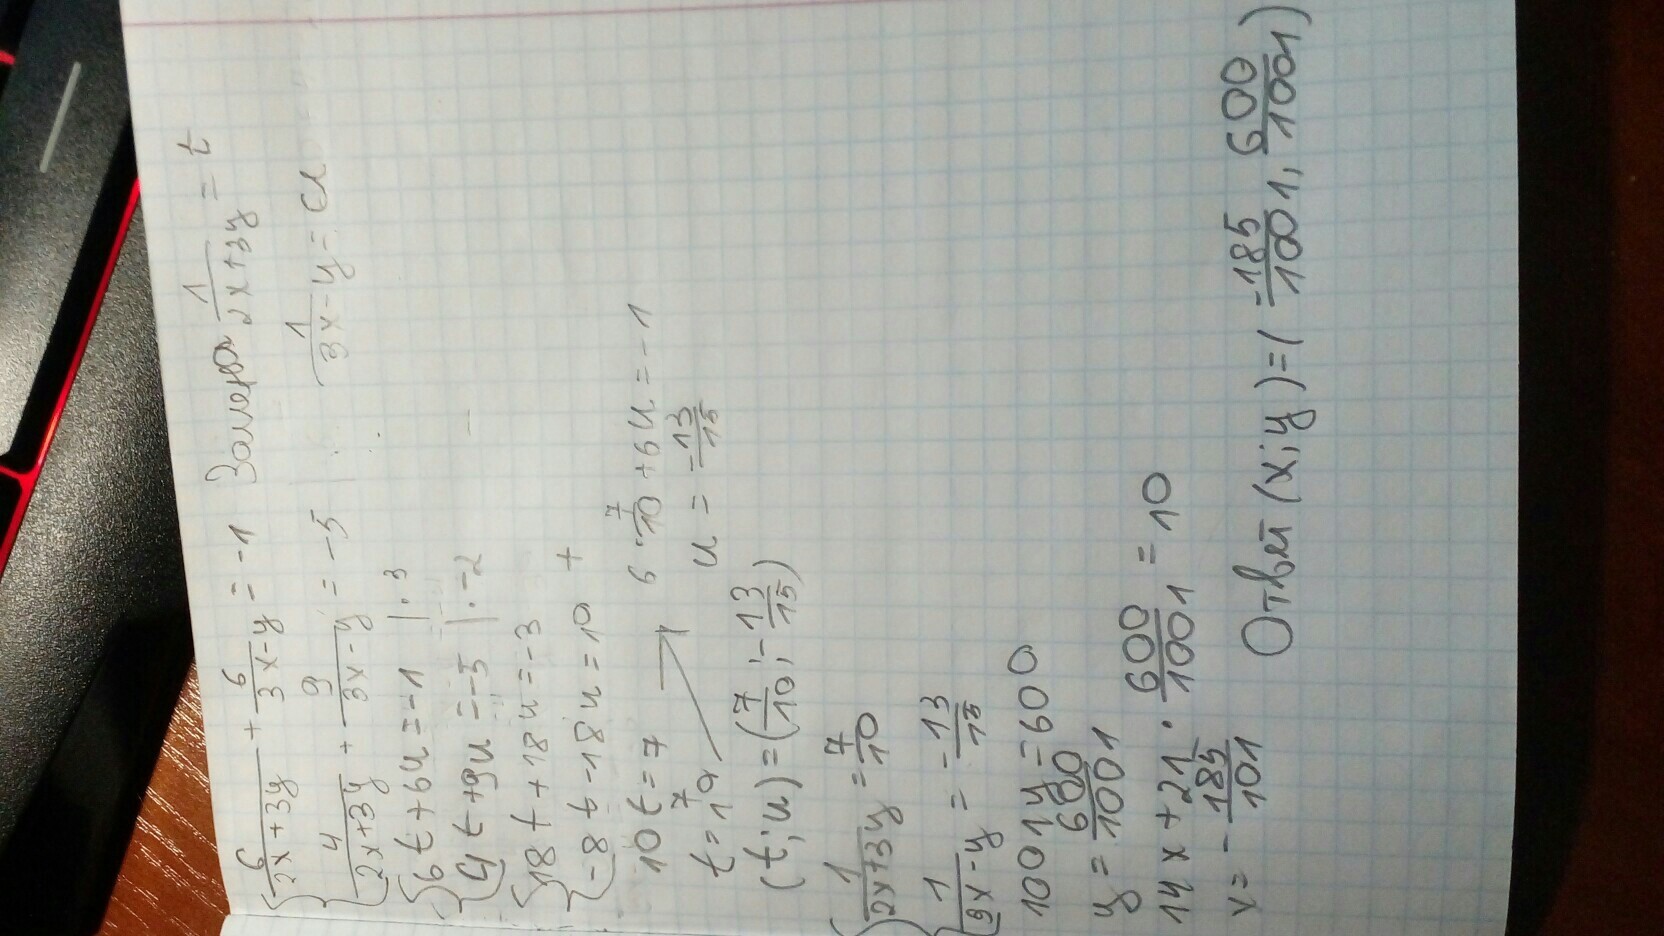 { 6/(2x+3y) + 6/(3x-y) = -1 Замена 1/(2x+3y) = t
{ 4/(2x+3y) + 9/(3x-y) = -5 1/(3x-y) = u
{ 6t+6u=-1 |·3
{ 4t+9u=-5 |·-2
{ 18t+18u=-3
{ -8t-18u=10 +
10t=7 6·7/10+6u=-1
t=7/10 u=-13/15
(t;u)=(7/10;-13/15)
{ 1/(2x+3y) = 7/10
{ 1/(9x-y) = -13/15
1001y=600
y = 600/1001
14x+21·600/1001=10
x=-185/101
Ответ (x;y)=(-185/1001, 600/1001)